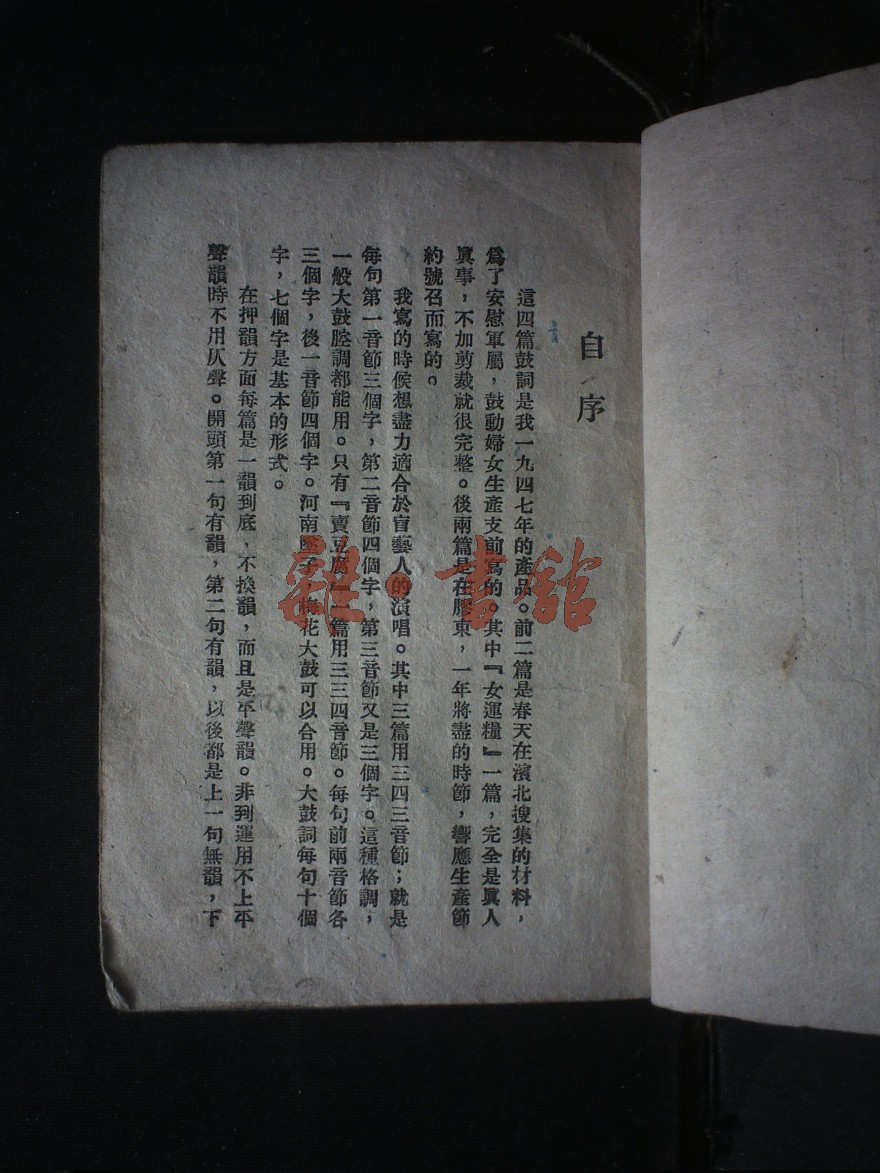 自序
這四篇鼓詞是我一九四七年的產品。前二篇是春天在濱北搜集的材料，
爲了安慰軍屬，鼓動婦女生產支前寫的。其中『女運糧』一篇，完全是眞人
眞事，不加剪裁就很完整。後兩篇是在膠東，一年將盡的時節，響應生產節
約號召而寫的。
我寫的時候想盡力適合於盲藝人的演唱。其中三篇用三四三音節；就是
每句第一音節三個字，第二音節四個字，第三音節又是三個字。這種格調，
一般大鼓腔調都能用。只有『賣豆腐』一篇用三三四音節。每句前兩音節各
三個字，後一音節四個字。河南墜子，梅花大鼓可以合用。大鼓詞每句十個
字，七個字是基本的形式。
在押韻方面每篇是一韻到底，不換韻，而且是平聲韻。非到運用不上平
聲韻時不用仄聲。開頭第一句有韻，第二句有韻，以後都是上一句無韻，下
雜·書館